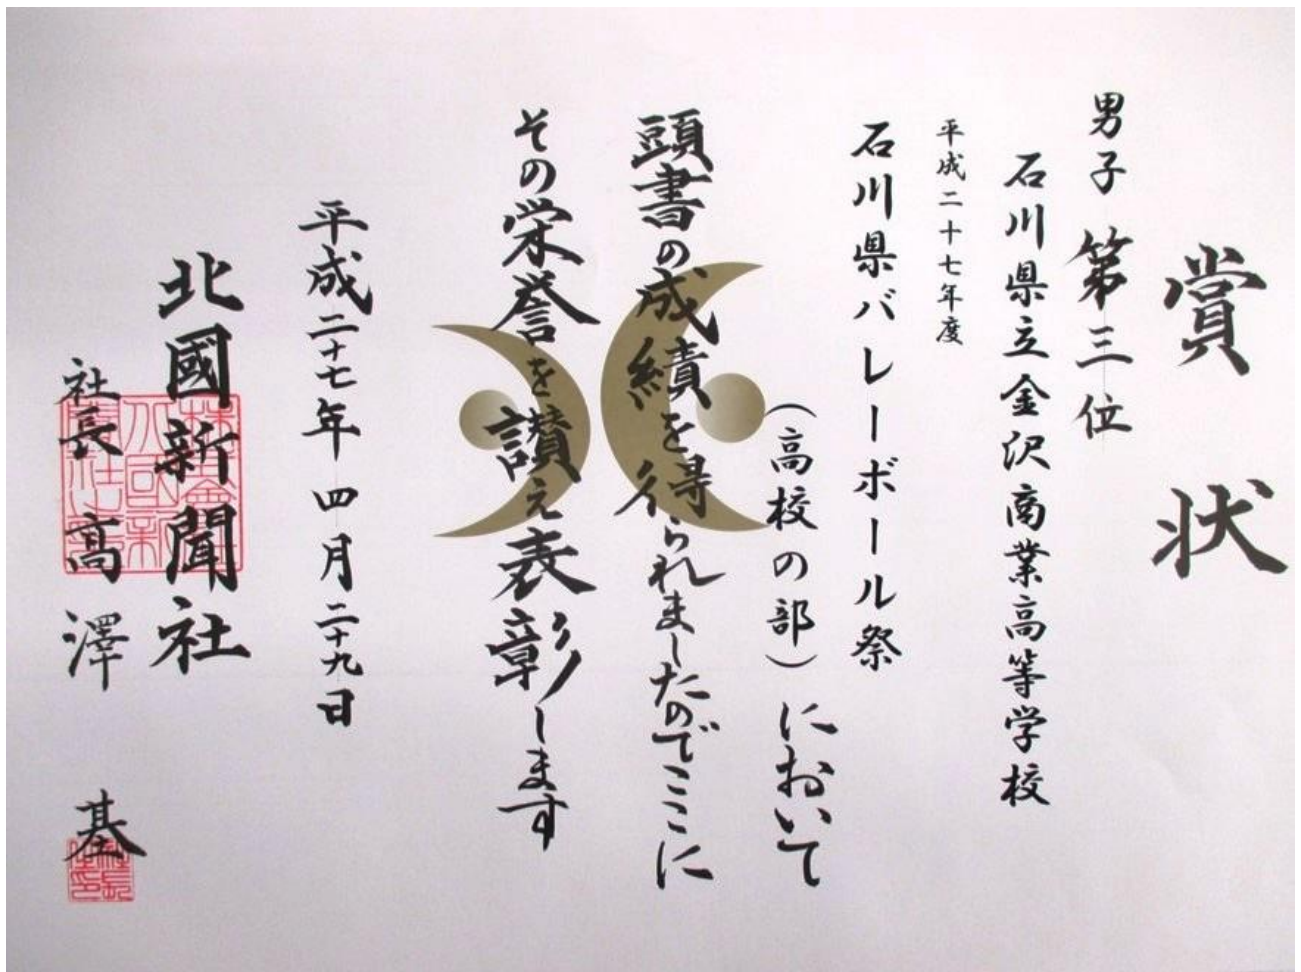 賞状
男子第三位
石川県立金沢商業高等学校
平成二十七年度
石川県バレーボール祭
（高校の部）において
頭書の成績を得られましたのでここに
その栄誉を讃え表彰します
平成二十七年四月二十九日
北國新聞社
社長高澤基